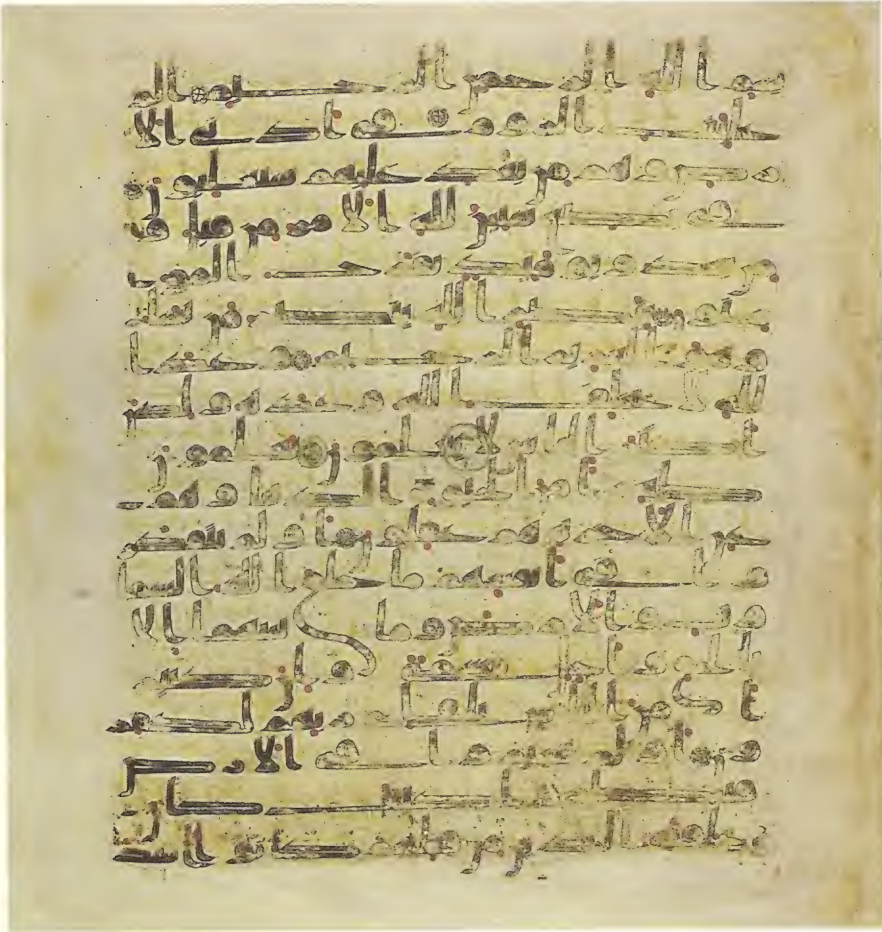 بسم الله الرحمن الرحيم الم
غلبت الروم في ادنى الا
رض وهم من بعد غلبهم سيغلبون
في بضع سنين لله الامر من قبل و
من بعد ويومئذ يفرح المو
منون بنصر الله ينصر من يشا
وهو العزيز الرحيم وعد ا
لله لا يخلف الله وعده ولكن
اكثر الناس لا يعلمون يعلمون
ظهرا من الحيوة الدنيا وهم
عن الاخرة هم غفلون اولم يتفكر
وا في انفسهم ما خلق الله السمو
ت والارض وما بينهما الا
بالحق واجل مسمى وان كثير
ا من الناس بلقاى ربهم لكفر
ون اولم يسيروا في الارض
فينظروا كيف كان
عقبة الذين من قبلهم كانوا اشد